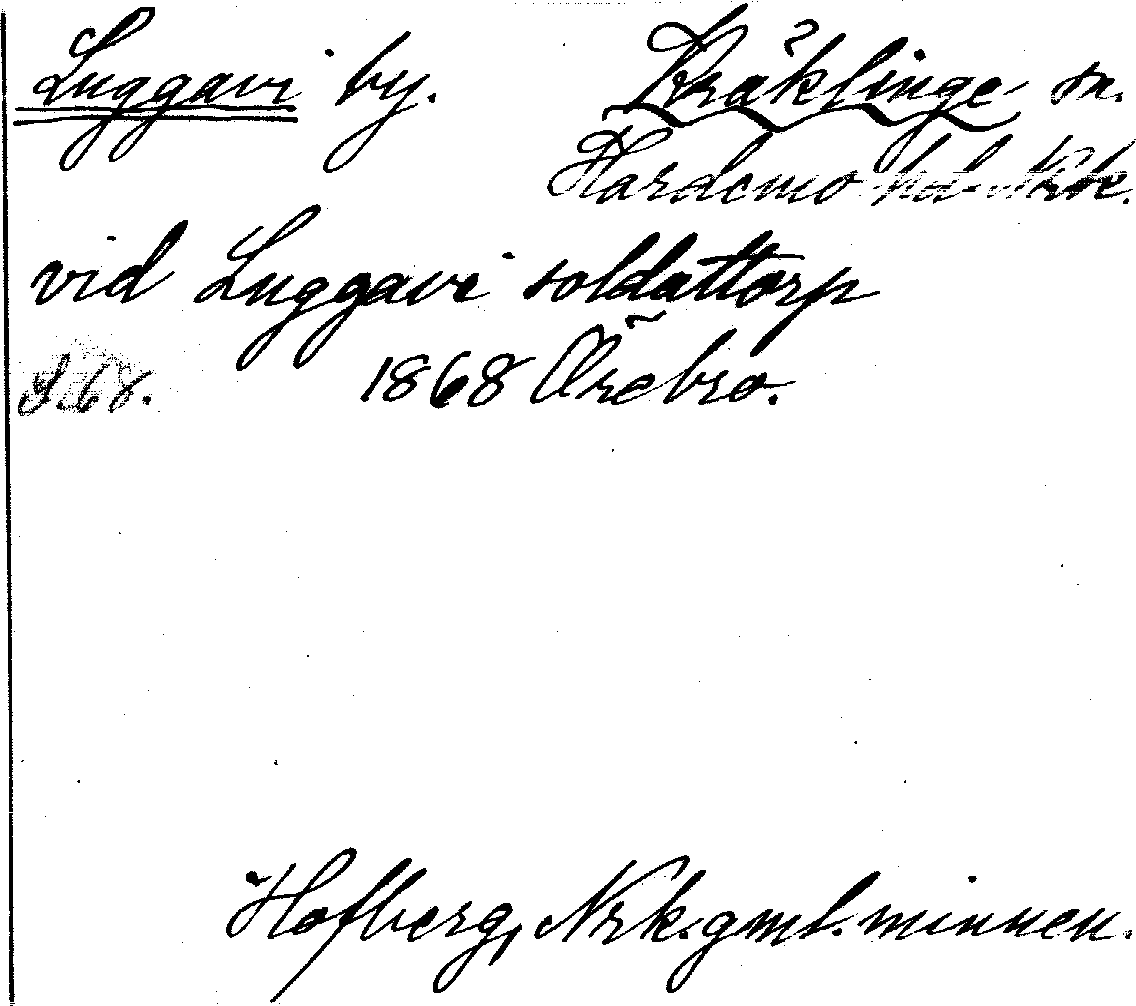 Luggavi by. Kräklinge sn.
Hardemo hd. Nrke.
vid Luggavi soldattorp
S. 68. 1868 Örebro.
Hofberg, Nrk. gml. minnen.